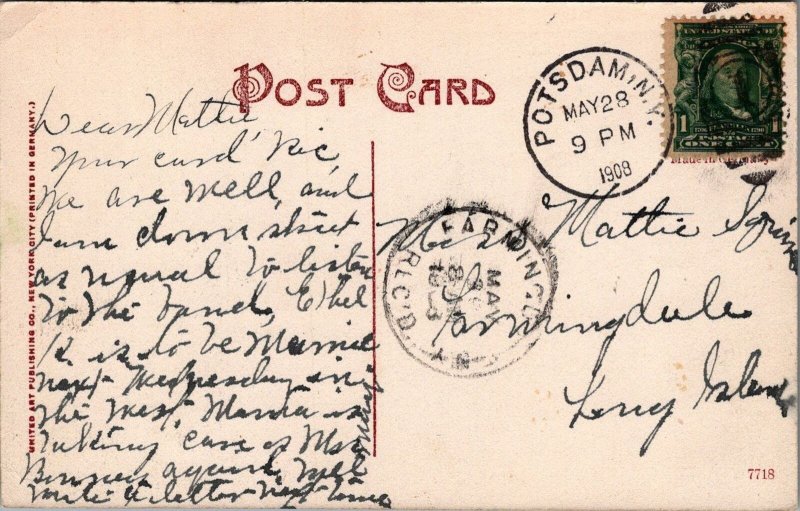 POST CARD
UNITED ART PUBLISHING CO., NEW YORK CITY (PRINTED IN GERMANY.)
Dear Mattie
Your card rec,
We are well, and
I am down street
as usual to listen
to the band, Ethel
is to be
next Wednesday in
the West, Mama is
taking care of Mrs
again, will
write a letter next time
POTSDAM, N.Y.
MAY 28
9 PM
1908
UNITED STATES OF
POSTAGE
1 ONE 1
Made in Germany
FARMINGDALE
MAY
REC'D.
N.Y.
Mattie
Farmingdale
Long Island
7718